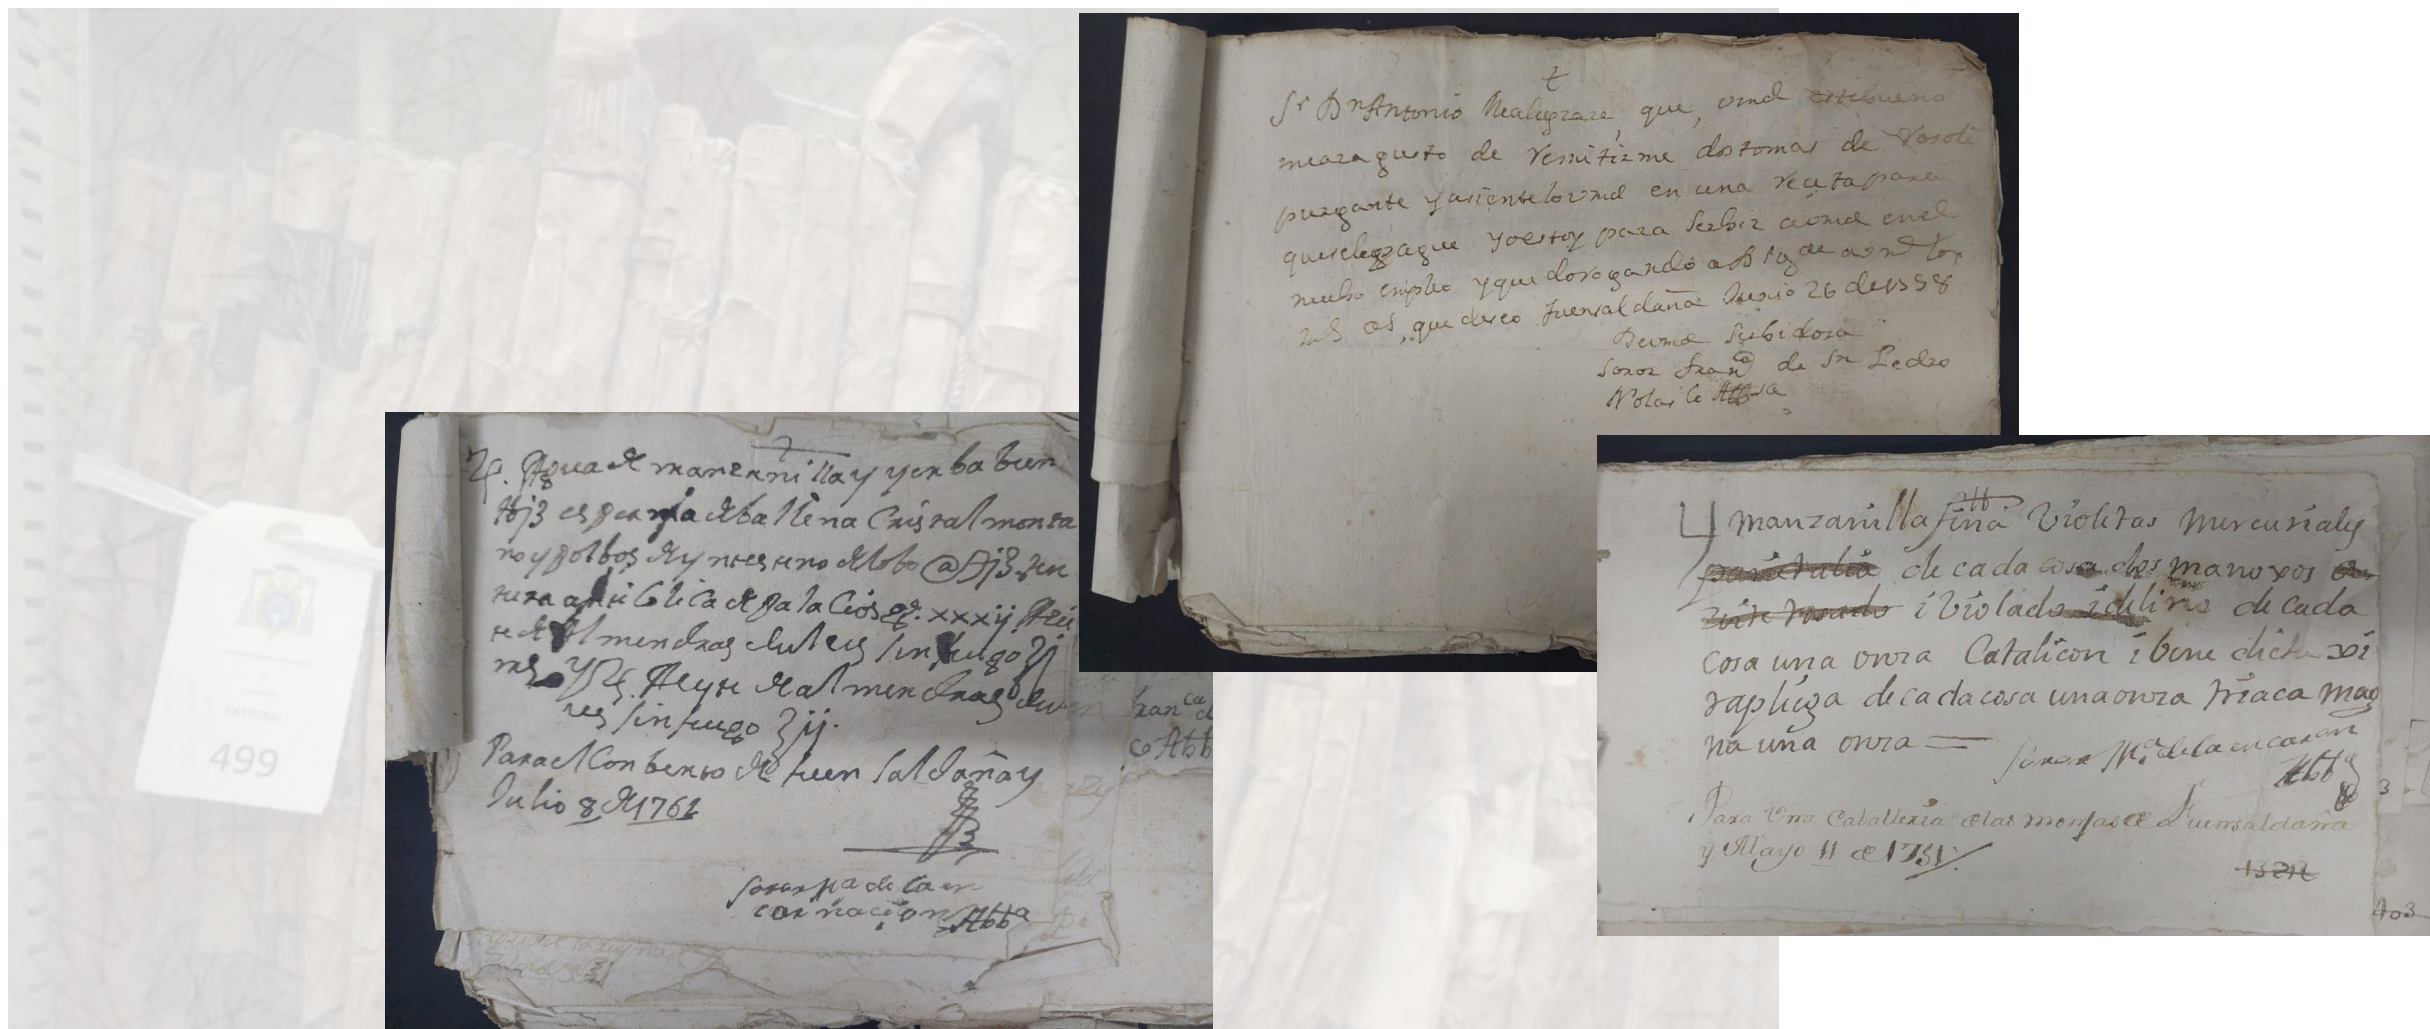 Sr Dn Antonio Mealegrare que vmd estebueno
meara gusto de Remitirme dos tomas de
purgante y asientelo vmd en una Receta para
queselepague yo estoy para serbir avmd en el
mucho empleo y quedo rogando a
que deseo fuensaldaña Junio 26 de
De vmd Serbidora
Soror Franca de Sn Pedro
Nolasco Abbsa
Agua de manzanilla y yerba buen
esperma de ballena Cristal monta
no y polbos de yntestino de lobo @
de Palacios gs. xxxij. Acei
te de Almendras dulces sin fuego
Aeyte de almendras dul
ces sin fuego ℥ij.
Para el Conbento de fuen saldaña y
Julio 8 de 1762
Soror Ma de la en
carnacion Abba
CATEDRAL
499
manzanilla fina Violetas Mercuriales
parietalia de cada cosa dos manoxos
rosado i Violado i de lirio de cada
cosa una onza Catalicon i bene dicta
de cada cosa una onza triaca mag
na una onza =
Soror Ma de la encarnan
Abba
Para Una Caballeria de las monjas de Fuensaldaña
y Mayo 11 de 1751